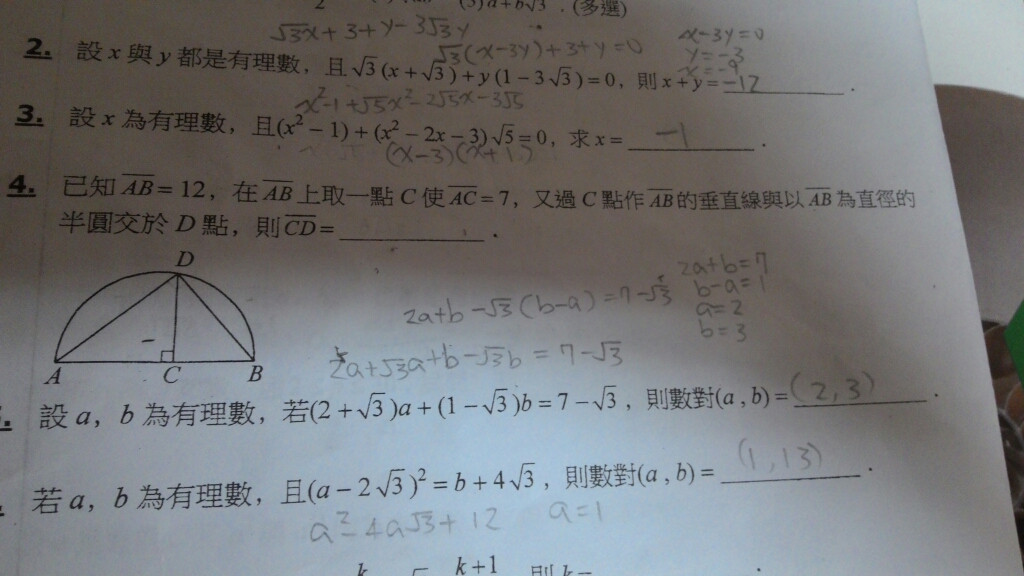 (5) a+b√3 . (多選)
√3x+3+y-3√3y
√3(x-3y)+3+y=0
x-3y=0
y=-3
x=-9
2. 設 x 與 y 都是有理數，且 √3(x+√3)+y(1-3√3)=0，則 x+y= -12 .
x²-1+√5x²-2√5x-3√5
3. 設 x 為有理數，且(x²-1)+(x²-2x-3)√5=0，求 x= -1 .
(x-3)(x+1)
4. 已知 AB=12，在 AB 上取一點 C 使 AC=7，又過 C 點作 AB 的垂直線與以 AB 為直徑的
半圓交於 D 點，則 CD= .
D
A C B
2a+b=7
b-a=1
a=2
b=3
2a+b-√3(b-a)=7-√3
2a+√3a+b-√3b=7-√3
設 a，b 為有理數，若(2+√3)a+(1-√3)b=7-√3，則數對(a , b)= (2,3) .
若 a，b 為有理數，且(a-2√3)²=b+4√3，則數對(a , b)= (1,13) .
a²-4a√3+12 a=1
k+1